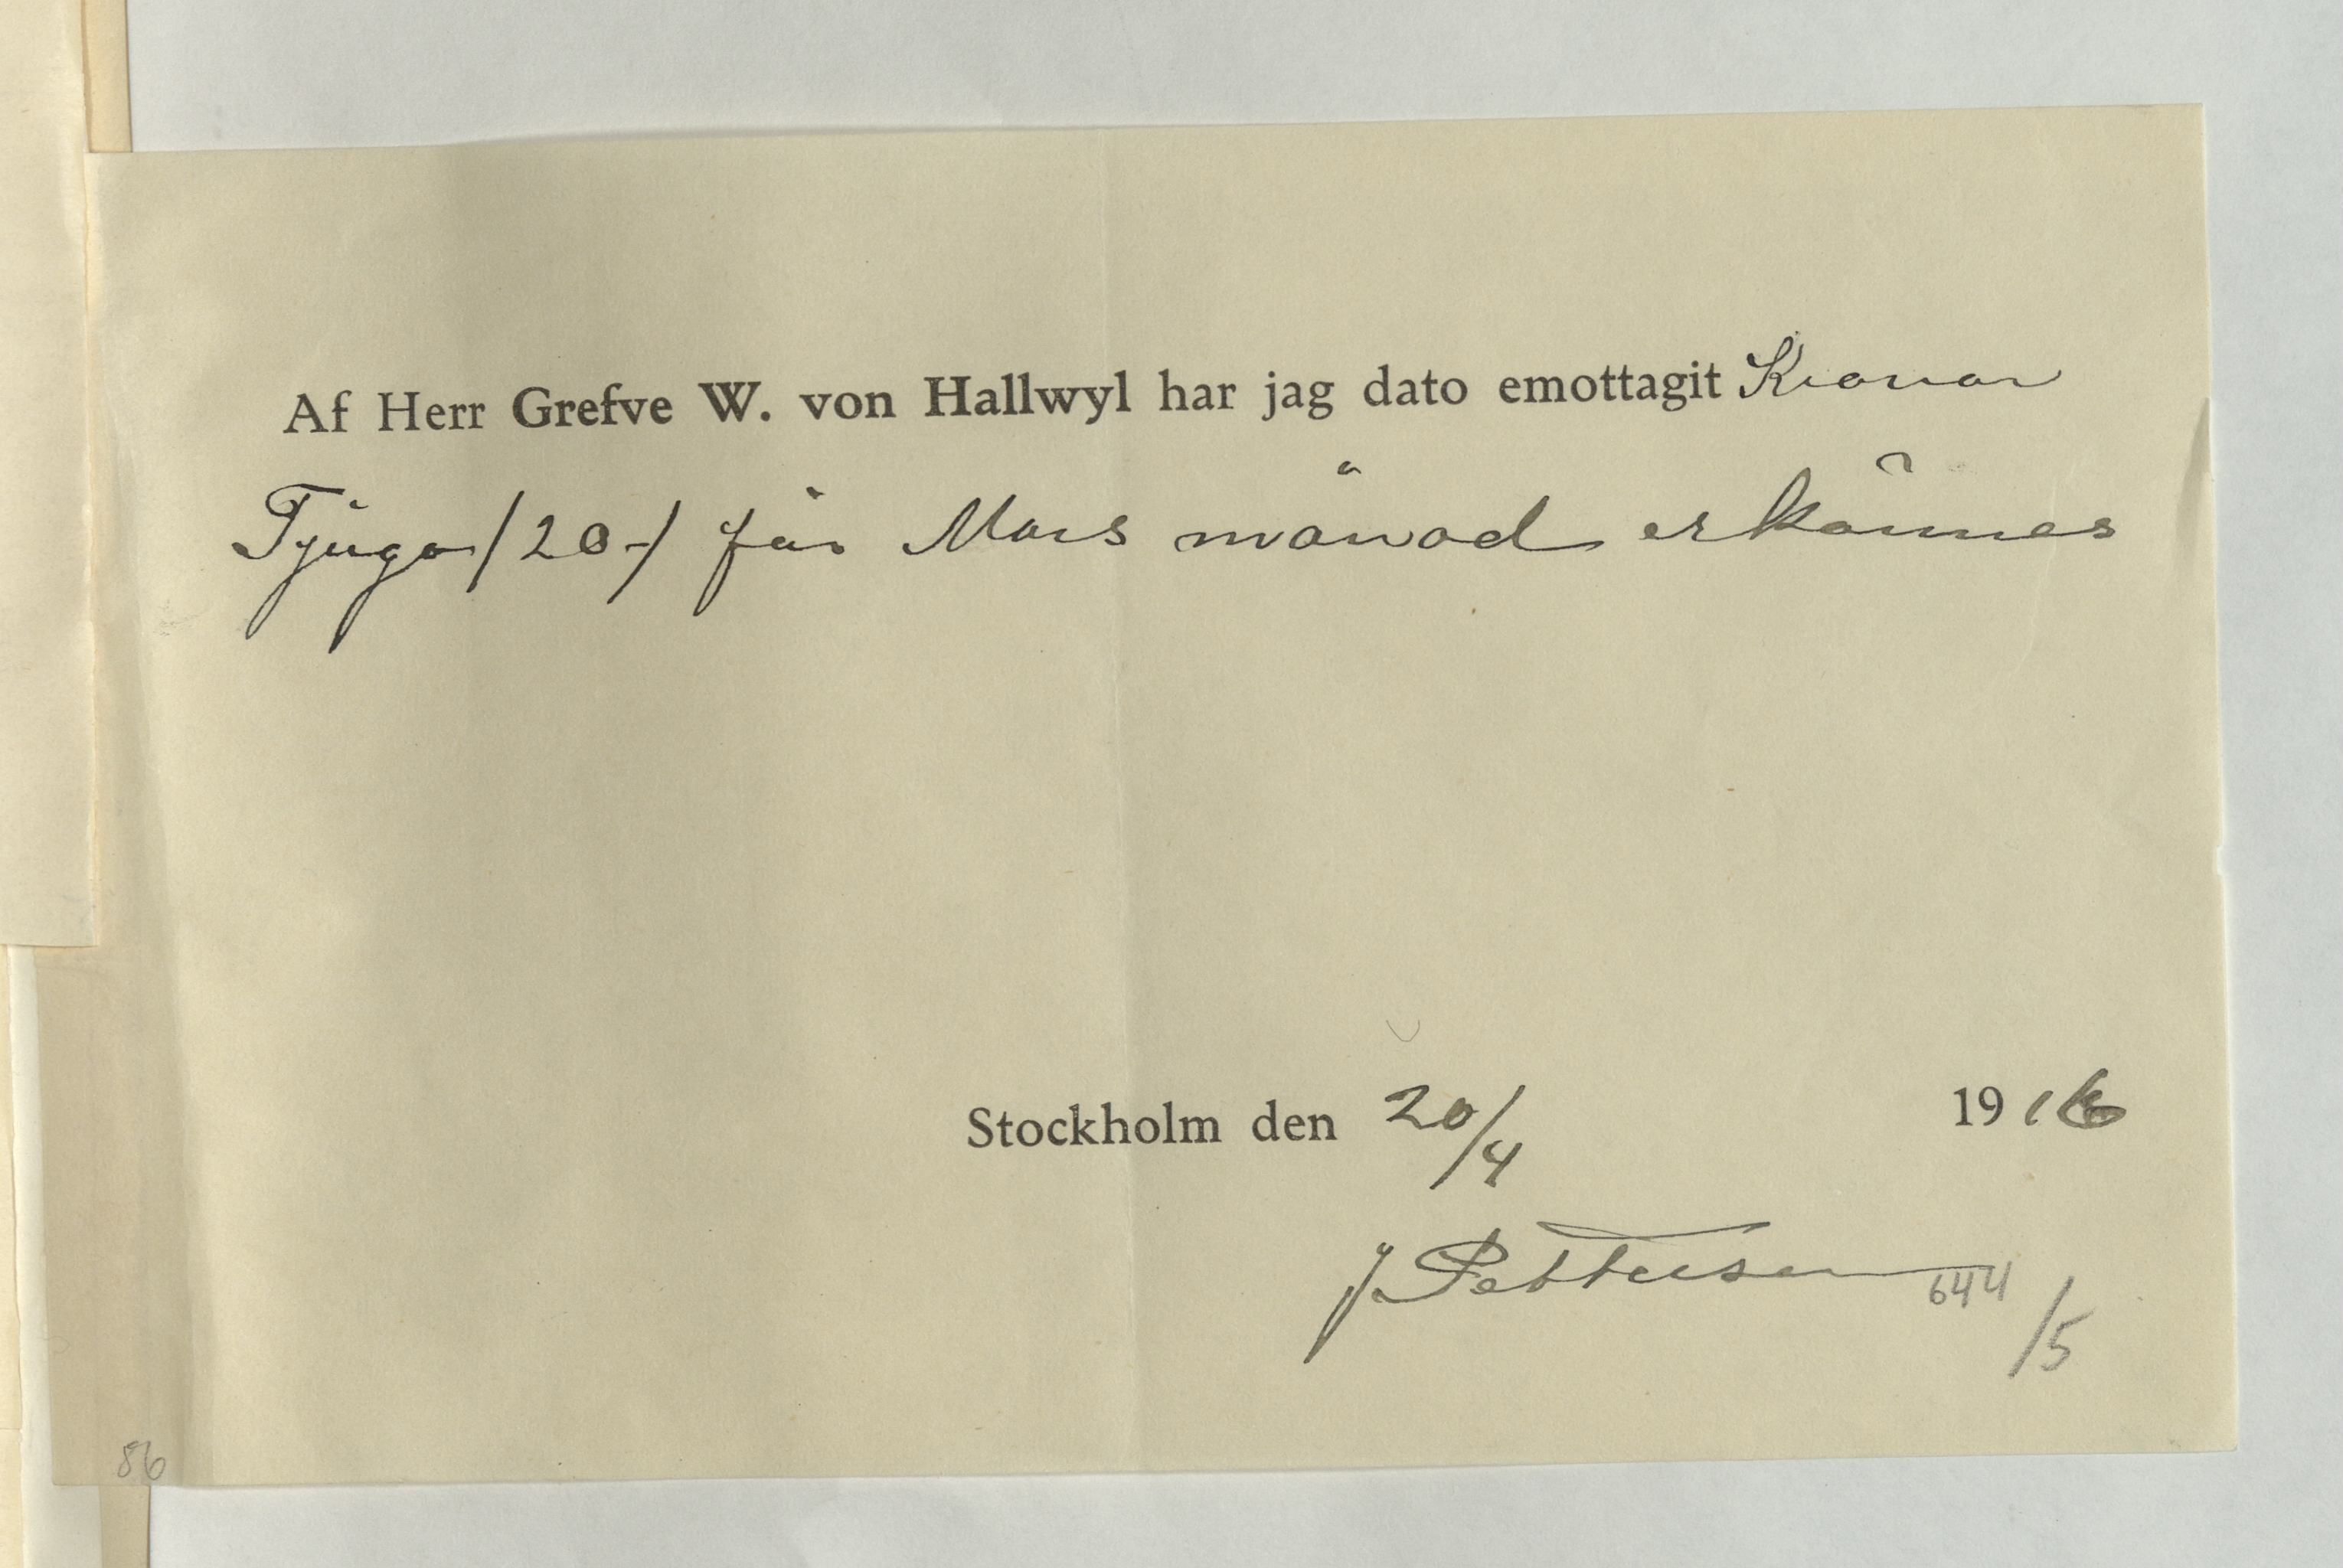 Af Herr Grefve W. von Hallwyl har jag dato emottagit Kronor
Tjugo /20-/ för Mars månad erkännes
Stockholm den 20/4 1916
J Pettersson
644/5
86